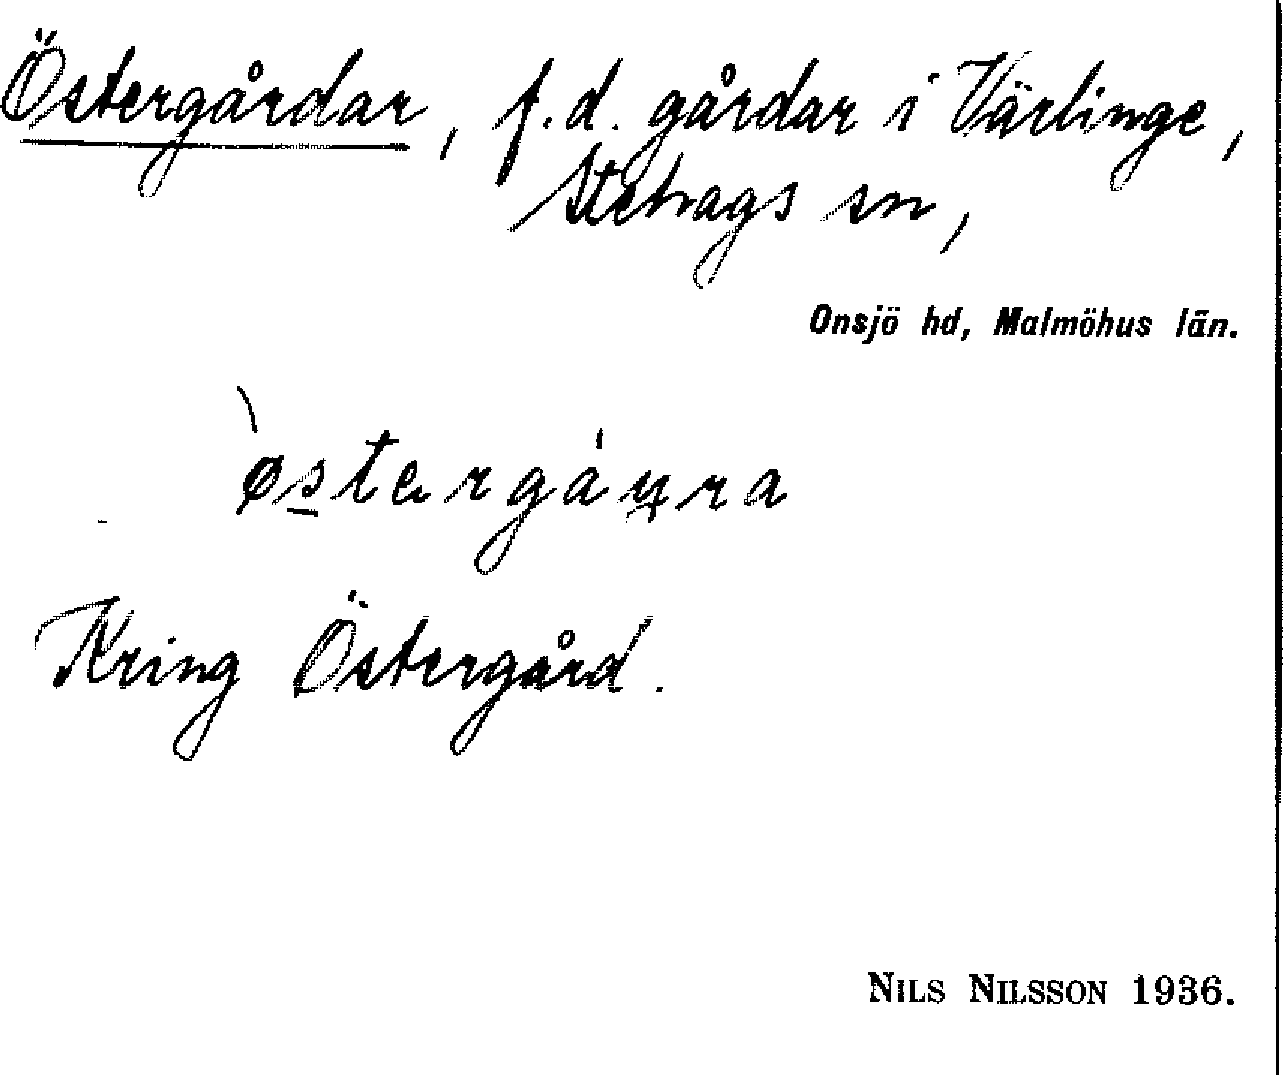 Östergårdar, f.d. gårdar i Värlinge,
Stehags sn,
Onsjö hd, Malmöhus län.
Kring Östergård.
NILS NILSSON 1936.